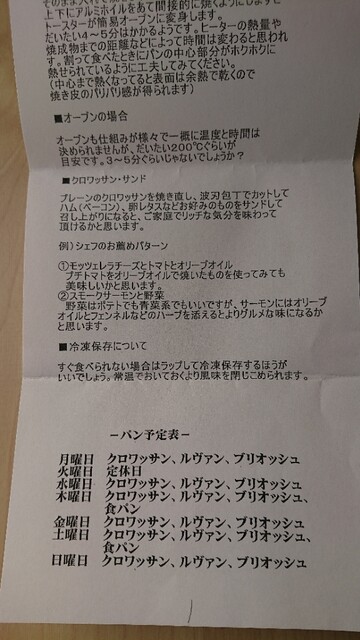 上下にアルミホイルをあて間接的に焼くようにしますと
トースターが簡易オーブンに変身します。
だいたい4~5分はかかるようです。ヒーターの熱量や
焼成物までの距離などによって時間は変わると思われ
す。割って食べたときにパンの中心部分がホクホクに
熱せられているように工夫してみてください。
(中心まで熱くなってると表面は余熱で乾くので
焼き皮のパリパリ感が得られます)
■オーブンの場合
オーブンも仕組みが様々で一概に温度と時間は
決められませんが、だいたい200℃ぐらいが
目安です。3~5分ぐらいじゃないでしょうか?
■クロワッサン・サンド
プレーンのクロワッサンを焼き直し、波刃包丁でカットして
ハム(ベーコン)、卵レタスなどお好みのものをサンドして
召し上がりになると、ご家庭でリッチな気分を味わって
頂けるかと思います。
例)シェフのお薦めパターン
①モッツェレラチーズとトマトとオリーブオイル
プチトマトをオリーブオイルで焼いたものを使ってみても
美味しいかと思います。
②スモークサーモンと野菜
野菜はポテトでも青菜系でもいいですが、サーモンにはオリーブ
オイルとフェンネルなどのハーブを添えるとよりグルメな味になるか
と思います。
■冷凍保存について
すぐ食べられない場合はラップして冷凍保存するほうが
いいでしょう。常温でおいておくより風味を閉じこめられます。
ーパン予定表ー
月曜日 クロワッサン、ルヴァン、ブリオッシュ
火曜日 定休日
水曜日 クロワッサン、ルヴァン、ブリオッシュ
木曜日 クロワッサン、ルヴァン、ブリオッシュ、
食パン
金曜日 クロワッサン、ルヴァン、ブリオッシュ
土曜日 クロワッサン、ルヴァン、ブリオッシュ、
食パン
日曜日 クロワッサン、ルヴァン、ブリオッシュ